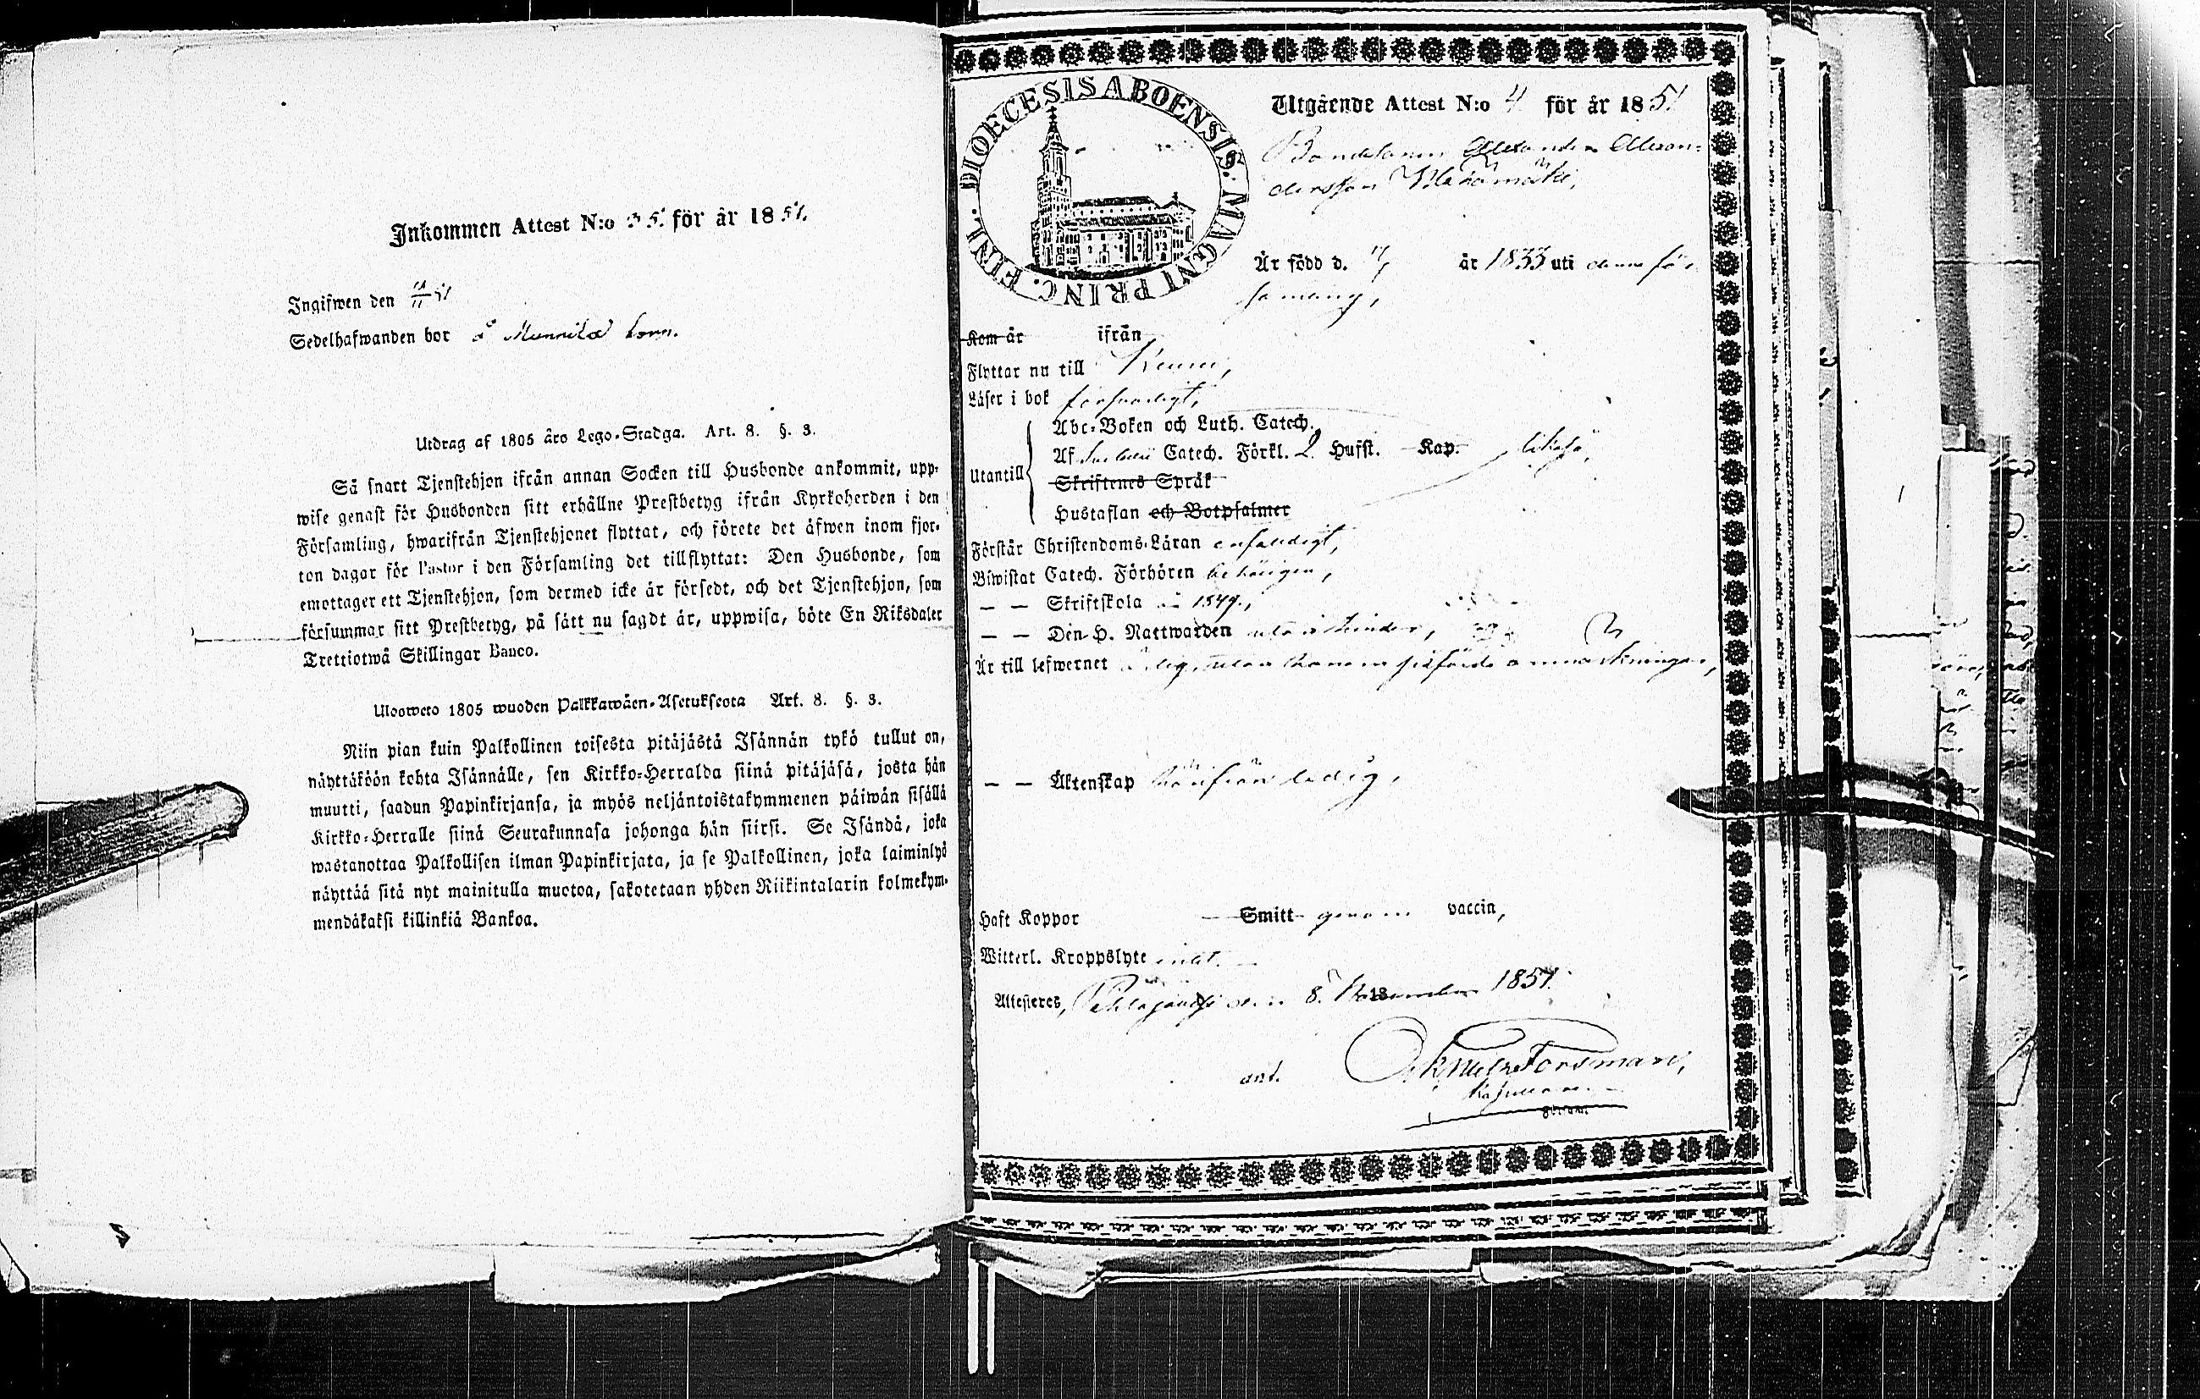 Inkommen Attest N:o 35. för år 1851.
Ingifwen den
Sedelhafwanden bor å Mannila
Utdrag af 1805 års Lego-Stadga. Art. 8. §. 3.
Så snart Tjenstehjon ifrån annan Socken till Husbonde ankommit, upp-
wise genast för Husbonden sitt erhållne Prestbetyg ifrån Kyrkoherden i den
Församling, hwarifrån Tjenstehjonet flyttat, och förete det äfwen inom fjor-
ton dagar för Pastor i den Församling det tillflyttat: Den Husbonde, som
emottager ett Tjenstehjon, som dermed icke är försedt, och det Tjenstehjon, som
försummar sitt Prestbetyg, på sätt nu sagdt är, uppwisa, böte En Riksdaler
Trettiotwå Skillingar Banco.
Uloswets 1805 wuoden Palkkawäen-Asetuksesta Art. 8. §. 3.
Niin pian kuin Palkollinen toisesta pitäjästä Isännän tykö tullut on,
näyttäköön kohta Isännälle, sen Kirkko-Herralda siinä pitäjäsä, josta hän
muutti, saadun Papinkirjansa, ja myös neljäntoistakymmenen päiwän sisällä
Kirkko-Herralle siinä Seurakunnasa johonga hän siirsi. Se Isändä, joka
wastanottaa Palkollisen ilman Papinkirjata, ja se Palkollinen, joka laiminlyö
näyttää sitä nyt mainitulla muotoa, sakotetaan yhden Riikintalarin kolmekym-
mendäkaksi killinkiä Bankoa.
DIOECESIS ABOENSIS. MAGNI PRINC. FINL.
Utgående Attest N:o 4 för år 1851
Bondesonen Alexander Alexan-
dersson
Är född d. år 1833 uti denna för-
samling,
Kom år ifrån
Flyttar nu till Kumo,
Läser i bok försvarligt,
Abc-Boken och Luth. Catech.
Af Catech. Förkl. 2 Hufst. Kap. likaså,
Utantill
Skriftenes Språk
Hustaflan och Botpsalmer
Förstår Christendoms-Läran enfaldigt,
Biwistat Catech. Förhören behörigen,
— — Skriftskola år 1849.,
— — Den H. Nattwarden utan hinder,
Är till lefwernet ärlig, utan anmärkningar,
— — Äktenskap härifrån ledig,
Haft Koppor Smitt genom vaccin,
Witterl. Kroppslyte intet.
Attesteres, den 8 November 1851.
Forsman,